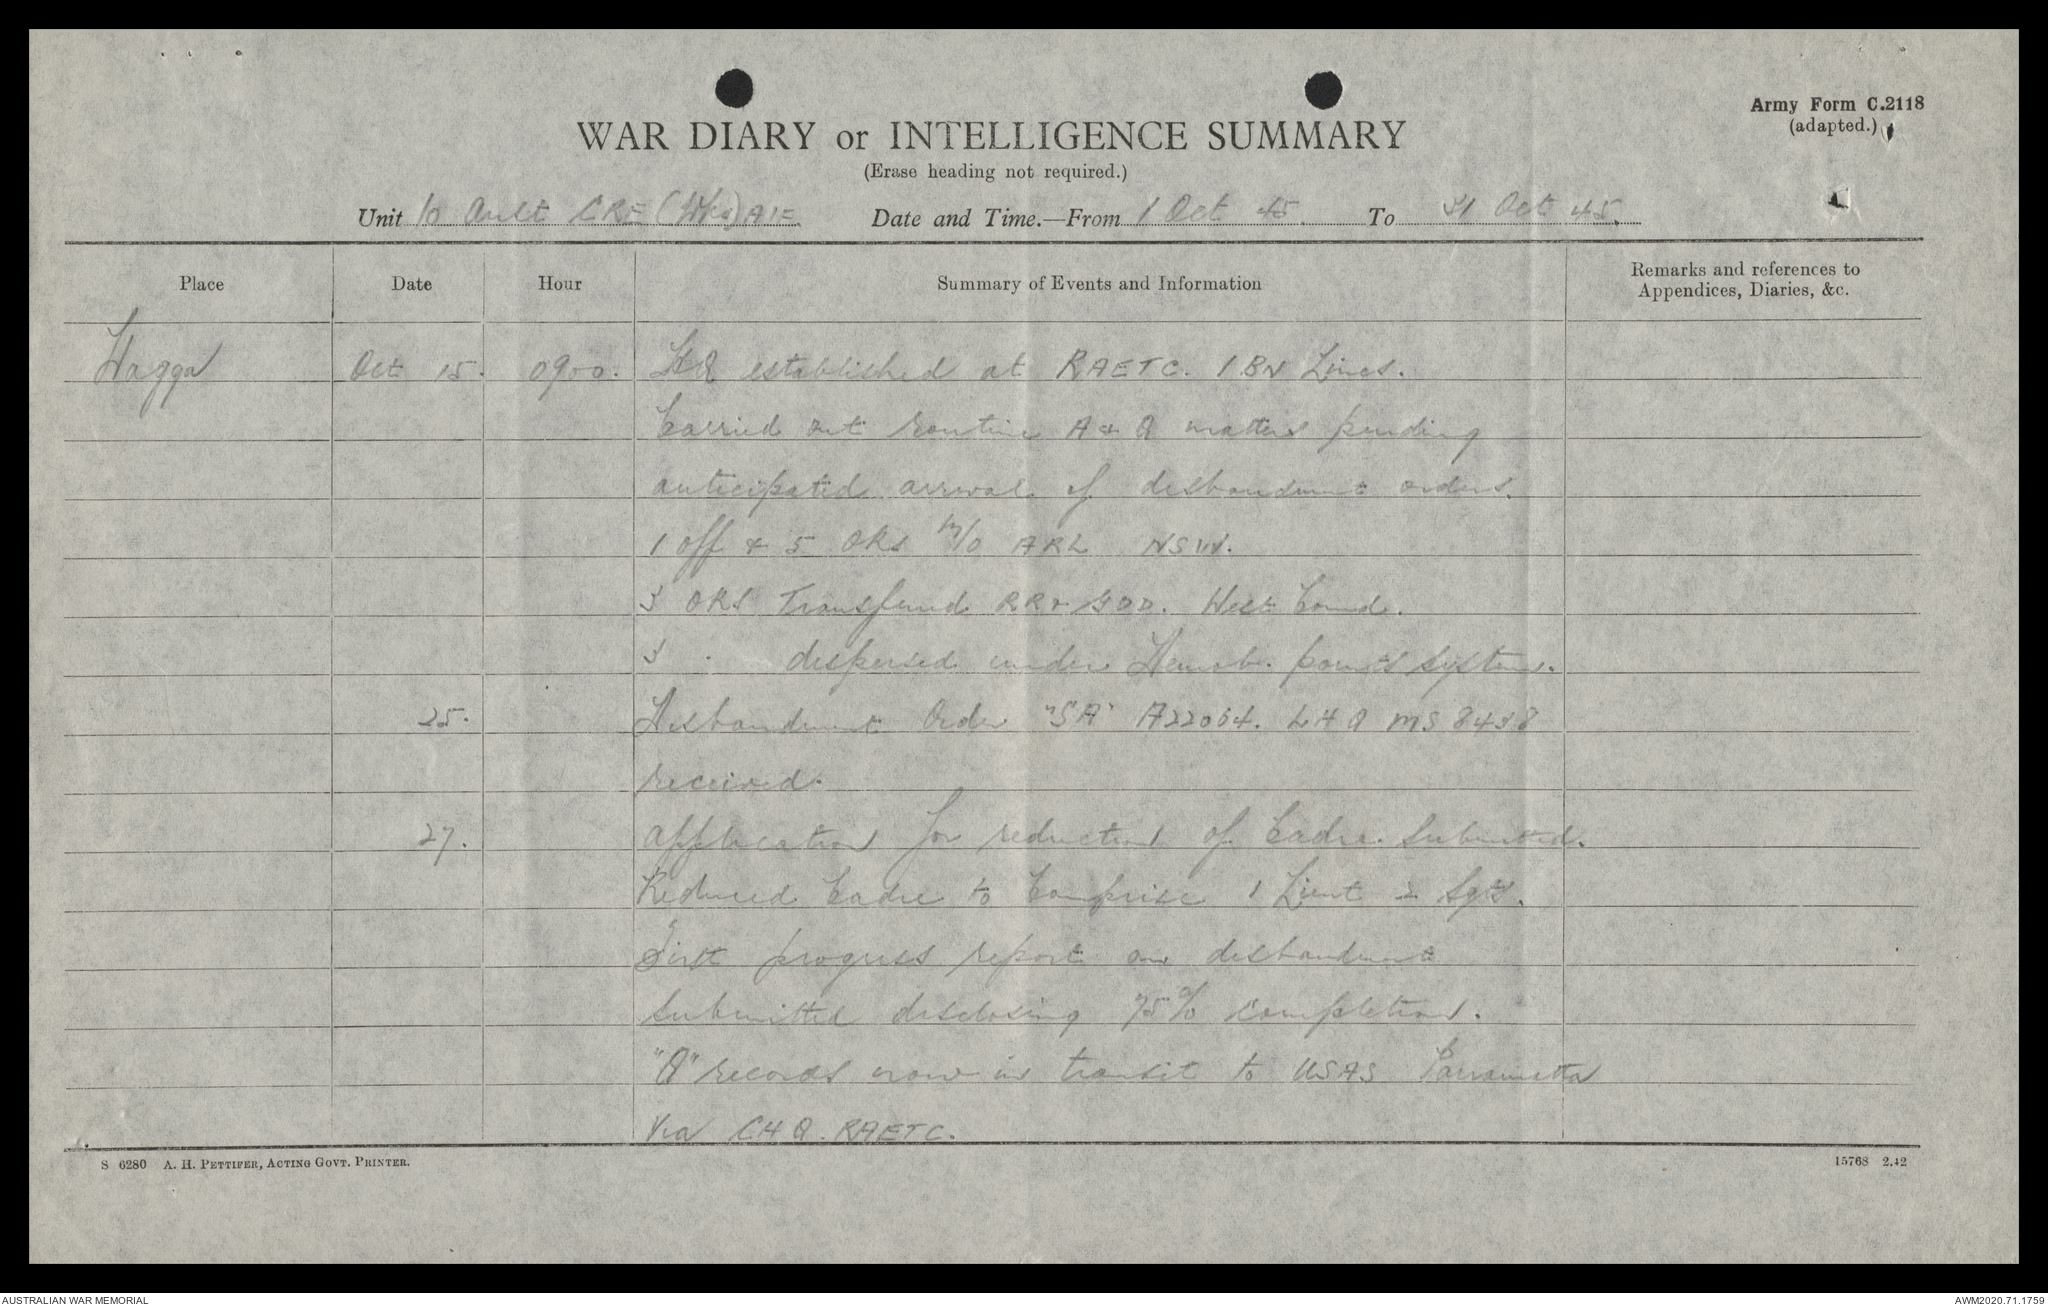 Army Form C.2118
(adapted.)
WAR DIARY or INTELLIGENCE SUMMARY
(Erase heading not required.)
Unit 10 Aust CRE (Wks) AIF Date and Time.—From 1 Oct 45. To 31 Oct 45.
Place Date Hour Summary of Events and Information Remarks and references to
Appendices, Diaries, &c.
Wagga Oct 15. 0900. HQ established at RAETC. 1 BN Lines.
Carried out routine A & Q matters pending
anticipated arrival of disbandment orders.
1 off & 5 ORs m/o ARL NSW.
3 ORS Transferred RR & GDD. West Comd.
3 " dispersed under Demob. points system.
25. Disbandment Order "SA" A22064. LHQ MS 8438
received.
27. Application for reduction of Cadre submitted.
Reduced Cadre to Comprise 1 Lieut 2 Sgts.
First progress report on disbandment
submitted disclosing 75% completion.
"Q" records now in transit to USAS Parramatta
Via CHQ. RAETC.
S 6280 A. H. PETTIFER, ACTING GOVT. PRINTER.
15768 2.42
AUSTRALIAN WAR MEMORIAL
AWM2020.71.1759